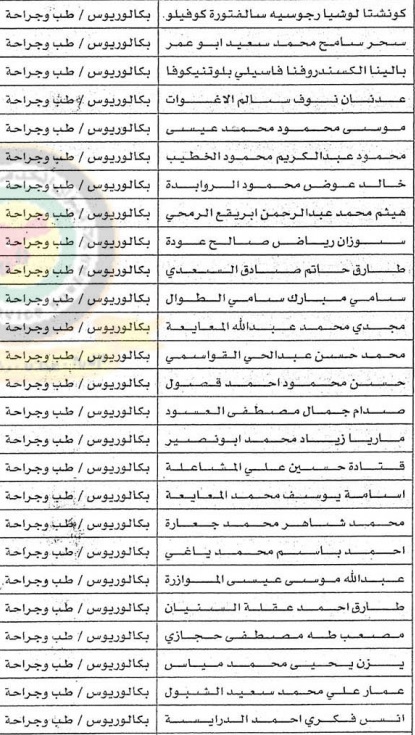 كونشتا لوشيا رجوسيه سالفتورة كوفيلو. بكالوريوس / طب وجراحة
سحر سامح محمد سعيد ابو عمر بكالوريوس / طب وجراحة
بالينا الكسندروفنا فاسيلي بلوتنيكوفا بكالوريوس / طب وجراحة
عدنان نوف سالم الاغوات بكالوريوس / طب وجراحة
موسى محمود محمد عيسى بكالوريوس / طب وجراحة
محمود عبدالكريم محمود الخطيب بكالوريوس / طب وجراحة
خالد عوض محمود الروابدة بكالوريوس / طب وجراحة
هيثم محمد عبدالرحمن ابريقع الرمحي بكالوريوس / طب وجراحة
سوزان رياض صالح عودة بكالوريوس / طب وجراحة
طارق حاتم صادق السعدي بكالوريوس / طب وجراحة
سامي مبارك سامي الطوال بكالوريوس / طب وجراحة
مجدي محمد عبدالله المعايعة بكالوريوس / طب وجراحة
محمد حسن عبدالحي القواسمي بكالوريوس / طب وجراحة
حسن محمود احمد قصول بكالوريوس / طب وجراحة
صدام جمال مصطفى العسود بكالوريوس / طب وجراحة
ماريا زياد محمد ابونصير بكالوريوس / طب وجراحة
قتادة حسين علي المشاعلة بكالوريوس / طب وجراحة
اسامة يوسف محمد المعايعة بكالوريوس / طب وجراحة
محمد شاهر محمد جعارة بكالوريوس / طب وجراحة
احمد باسم محمد ياغي بكالوريوس / طب وجراحة
عبدالله موسى عيسى الموازرة بكالوريوس / طب وجراحة
طارق احمد عقلة السنيان بكالوريوس / طب وجراحة
مصعب طه مصطفى حجازي بكالوريوس / طب وجراحة
يزن يحيى محمد مياس بكالوريوس / طب وجراحة
عمار علي محمد سعيد الشبول بكالوريوس / طب وجراحة
انس فكري احمد الدرايسة بكالوريوس / طب وجراحة